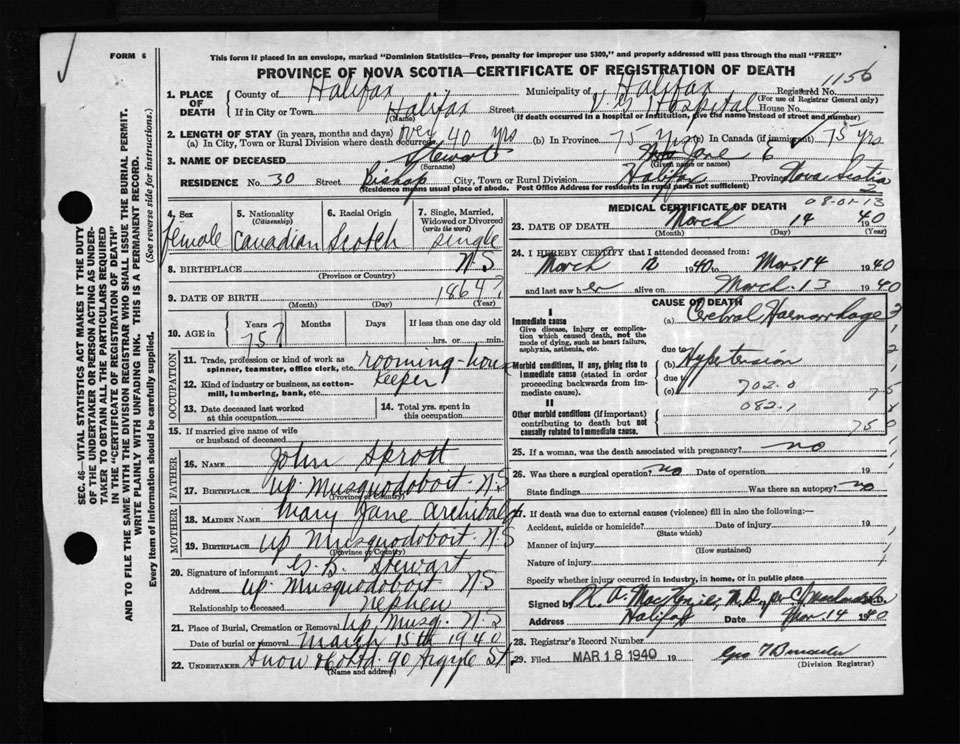 FORM 6
This form if placed in an envelope, marked "Dominion Statistics—Free, penalty for improper use $300," and properly addressed will pass through the mail "FREE"
PROVINCE OF NOVA SCOTIA—CERTIFICATE OF REGISTRATION OF DEATH
1156
1. PLACE OF DEATH County of Halifax Municipality of Halifax Registered No.
(For use of Registrar General only)
If in City or Town Halifax Street V. G. Hospital House No.
(Name) (If death occurred in a hospital or institution, give the name instead of street and number)
2. LENGTH OF STAY (in years, months and days)
(a) In City, Town or Rural Division where death occurred over 40 yrs (b) In Province 75 yrs (c) In Canada (if immigrant) 75 yrs
3. NAME OF DECEASED Stewart Jane
(Surname) (Given name or names)
RESIDENCE No. 30 Street Bishop City, Town or Rural Division Halifax Province Nova Scotia
(Residence means usual place of abode. Post Office Address for residents in rural parts not sufficient)
2
08-01-13
4. Sex female
5. Nationality (Citizenship) Canadian
6. Racial Origin Scotch
7. Single, Married, Widowed or Divorced (write the word) single
8. BIRTHPLACE N S
(Province or Country)
9. DATE OF BIRTH 1864?
(Month) (Day) (Year)
10. AGE in Years Months Days If less than one day old
75? hrs. or min.
OCCUPATION
11. Trade, profession or kind of work as spinner, teamster, office clerk, etc. rooming-house
12. Kind of industry or business, as cotton-mill, lumbering, bank, etc. Keeper
13. Date deceased last worked at this occupation
14. Total yrs. spent in this occupation
15. If married give name of wife or husband of deceased
FATHER
16. NAME John Sprott
17. BIRTHPLACE Up. Musquodoboit. N.S
(Province or Country)
MOTHER
18. MAIDEN NAME Mary Jane Archibald
19. BIRTHPLACE Up Musquodoboit N.S
(Province or Country)
20. Signature of informant Stewart
Address Up. Musquodoboit N.S
Relationship to deceased nephew
21. Place of Burial, Cremation or Removal Up. Musq. N.S
Date of burial or removal March 15th 1940
22. UNDERTAKER Snow & Co Ltd. 90 Argyle St.
(Name and address)
MEDICAL CERTIFICATE OF DEATH
23. DATE OF DEATH March 14 1940
(Month) (Day) (Year)
24. I HEREBY CERTIFY that I attended deceased from:
March 12 1940 to Mar. 14 1940
and last saw her alive on March. 13 1940
CAUSE OF DEATH
I
Immediate cause (a) Cerebral Haemorrhage
Give disease, injury or complication which caused death, not the mode of dying, such as heart failure, asphyxia, asthenia, etc.
due to
Morbid conditions, if any, giving rise to immediate cause (stated in order proceeding backwards from immediate cause). (b) Hypertension
due to
(c) 702.0
II
082.1
Other morbid conditions (if important) contributing to death but not causally related to immediate cause.
25. If a woman, was the death associated with pregnancy? no
26. Was there a surgical operation? no Date of operation 19
State findings Was there an autopsy? no
27. If death was due to external causes (violence) fill in also the following:—
Accident, suicide or homicide? Date of injury 19
(State which)
Manner of injury
(How sustained)
Nature of injury
Specify whether injury occurred in industry, in home, or in public place
Signed by K. A. MacKenzie, M.D. per M.D.
Address Halifax Date Mar. 14 1940
28. Registrar's Record Number
29. Filed MAR 18 1940 19
(Division Registrar)
SEC. 46—VITAL STATISTICS ACT MAKES IT THE DUTY
OF THE UNDERTAKER OR PERSON ACTING AS UNDER-
TAKER TO OBTAIN ALL THE PARTICULARS REQUIRED
IN THE "CERTIFICATE OF REGISTRATION OF DEATH"
AND TO FILE THE SAME WITH THE DIVISION REGISTRAR WHO SHALL ISSUE THE BURIAL PERMIT.
WRITE PLAINLY WITH UNFADING INK. THIS IS A PERMANENT RECORD.
Every item of information should be carefully supplied. (See reverse side for instructions.)